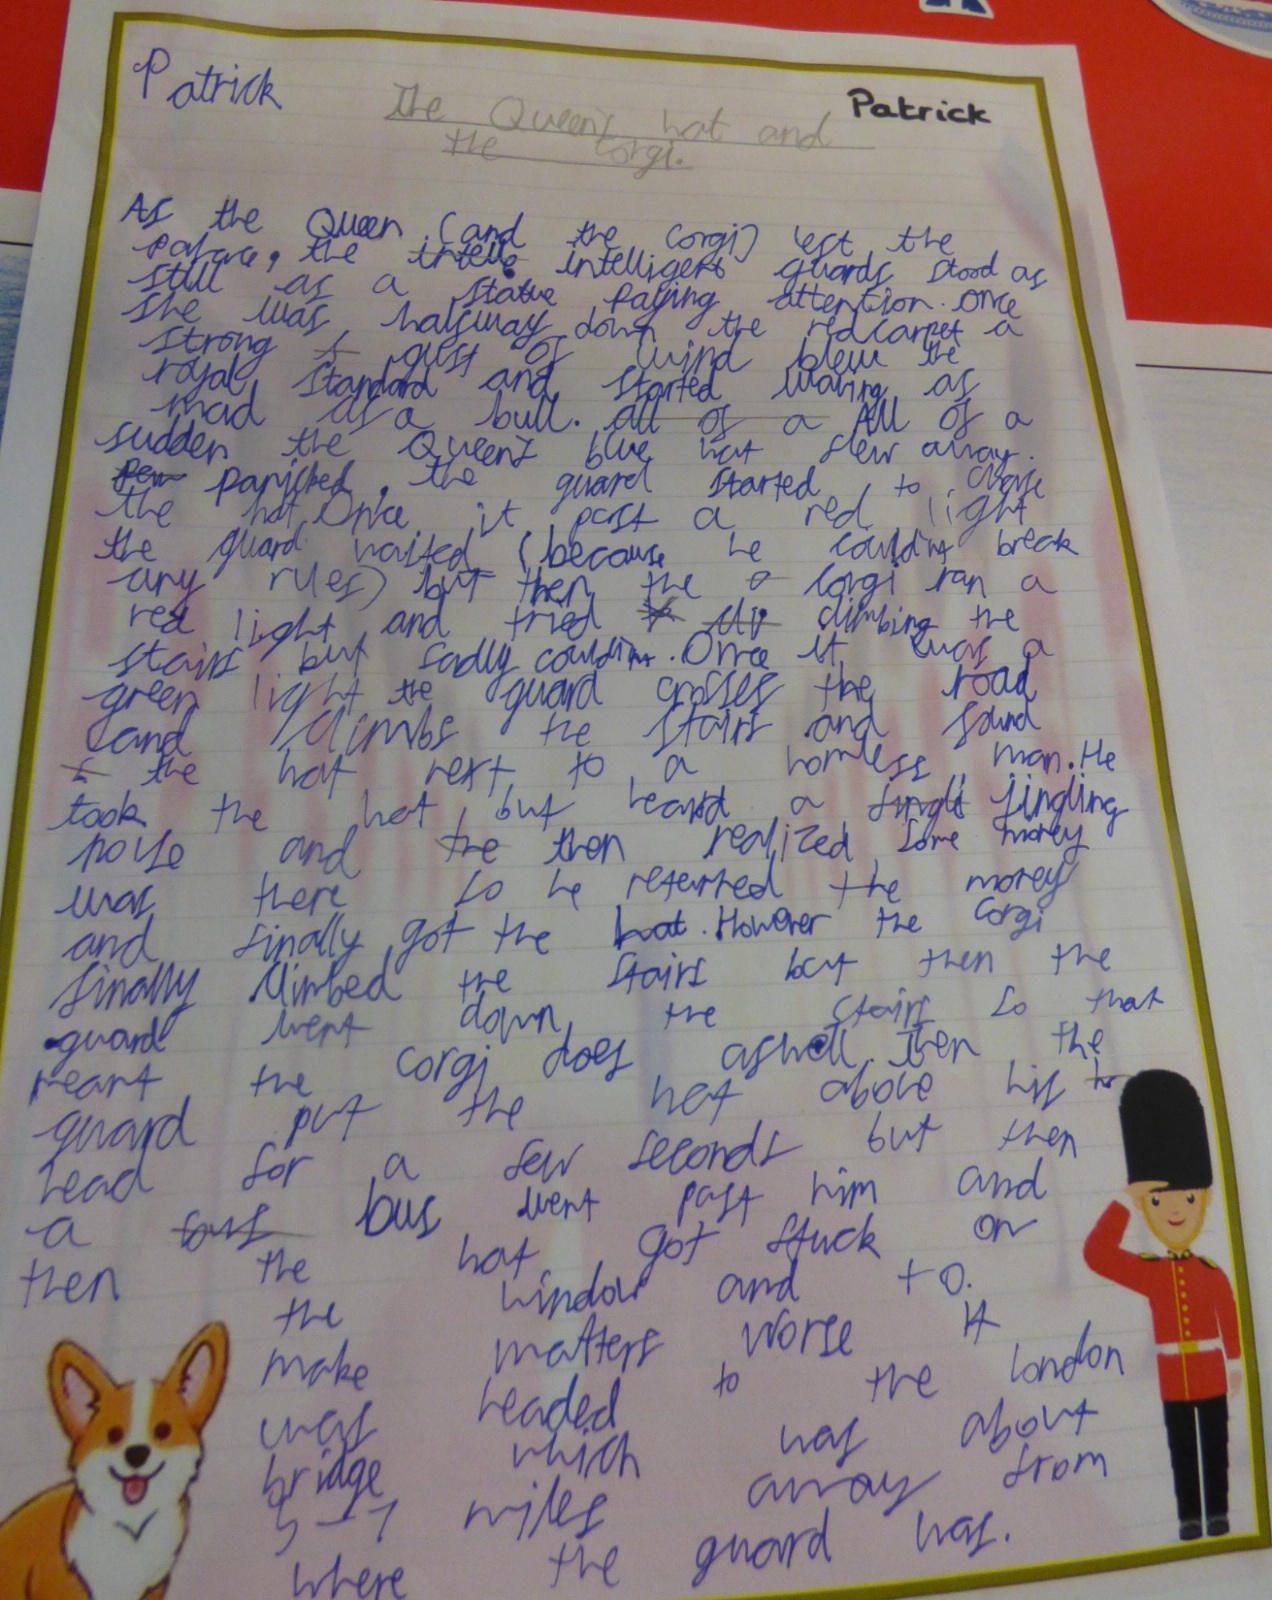 Patrick
Patrick
The Queen's hat and
the Corgi.
As the Queen (and the Corgi) left the
palace, the intelle intelligent guards stood as
still as a statue paying attention. Once
she was halfway down the red carpet a
strong gust of wind blew the
royal standard and started waving as
mad as a bull. all of a All of a
sudden the Queen's blue hat flew away.
panicked, the guard started to chase
the hat. Once it past a red light
the guard waited (because he couldn't break
any rules) but then the Corgi ran a
red light and tried climbing the
stairs but sadly couldn't. Once it was a
green light the guard crosses the road
(and climbs the stairs and found
the hat next to a homless man. He
took the hat, but heard a jingle jingling
noise and the then realized some money
was there so he returned the money
and finally got the hat. However the Corgi
finally climbed the stairs but then the
guard went down the stairs so that
meant the corgi does aswell. Then the
guard put the hat above his
head for a few seconds but then
a bus bus went past him and
then the hat got stuck on
the window and to.
make matters worse It
was headed to the london
bridge which was about
5-7 miles away from
where the guard was.